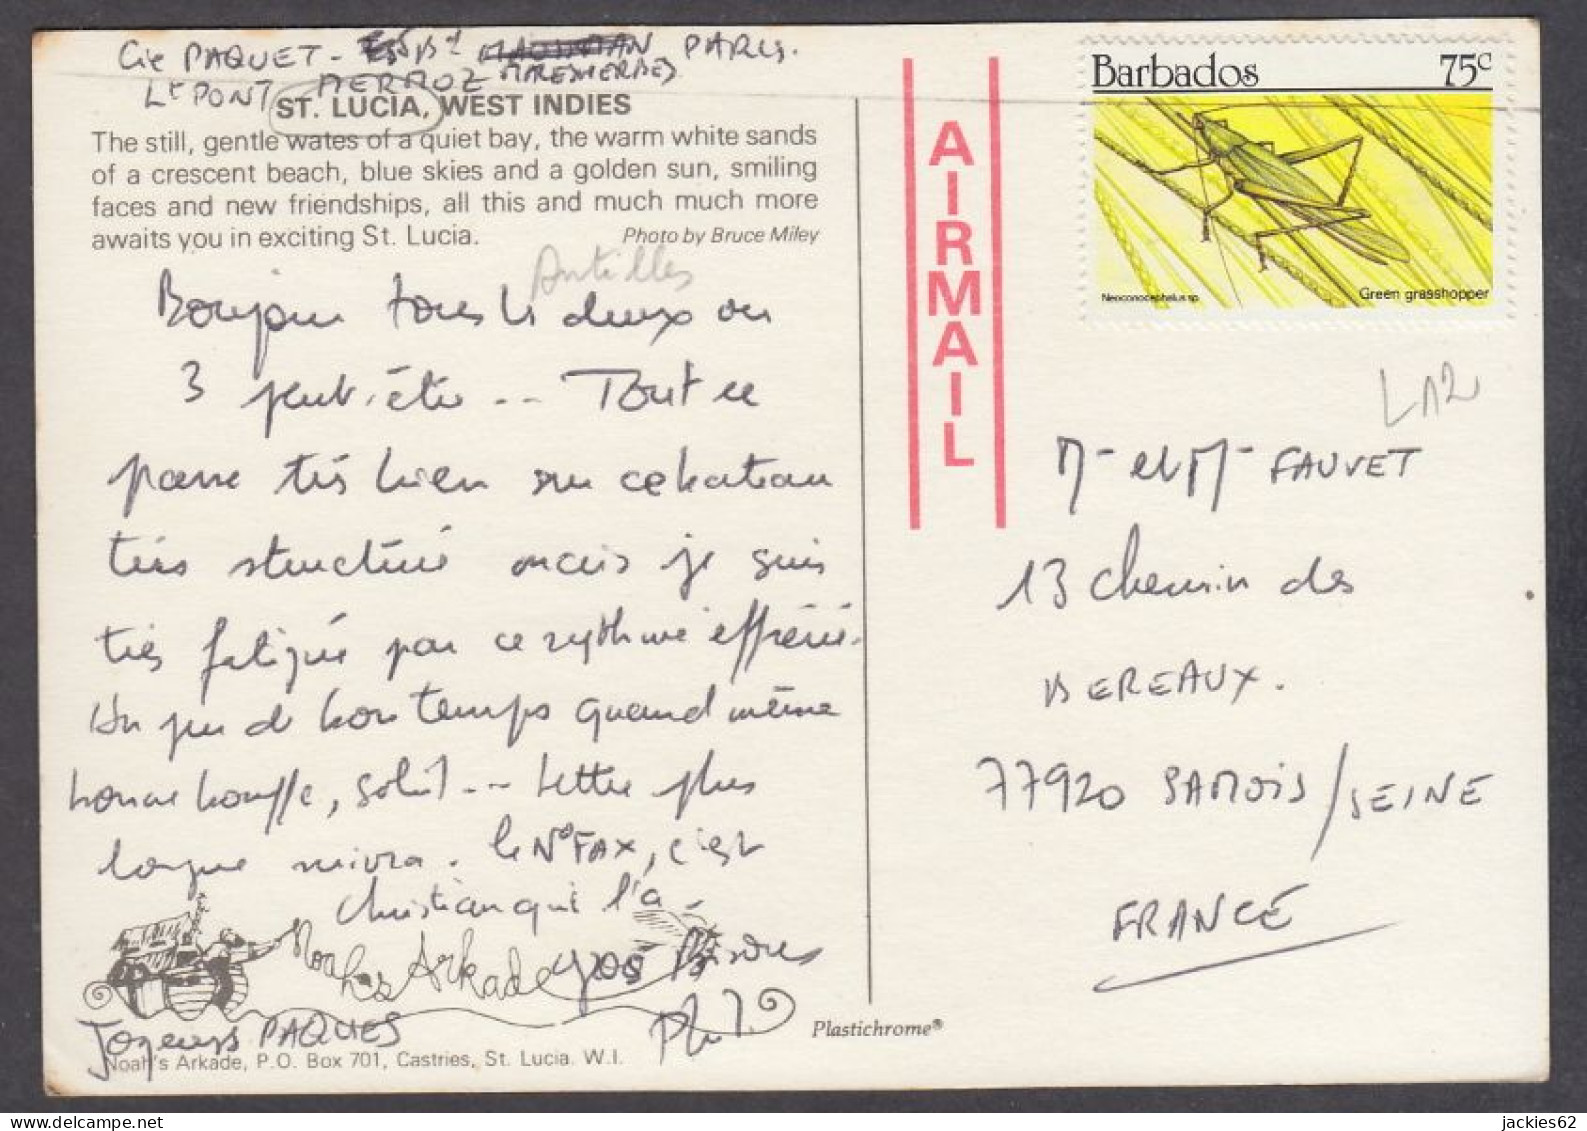 Cie PAQUET - PARIS.
Lt PONT MERMOZ MALESHERBES
ST. LUCIA, WEST INDIES
The still, gentle wates of a quiet bay, the warm white sands
of a crescent beach, blue skies and a golden sun, smiling
faces and new friendships, all this and much much more
awaits you in exciting St. Lucia.
Photo by Bruce Miley
Antilles
Bonjour tous les deux ou
3 peut-être .. Tout se
passe très bien sur ce bateau
très structuré mais je suis
très fatigué par ce rythme effréné.
Un peu de bon temps quand même
bonne bouffe, soleil... Lettre plus
longue suivra. le N° FAX, c'est
Christian qui l'a.
gros bisous
Phil.
Joyeuses PAQUES
Noah's Arkade
Noah's Arkade, P.O. Box 701, Castries, St. Lucia. W.I.
Plastichrome®
AIRMAIL
Barbados 75c
Neoconocephalus sp.
Green grasshopper
LA2
Mr et Mme FAUVET
13 chemin des
BEREAUX.
77920 SAMOIS/SEINE
FRANCE
jackies62